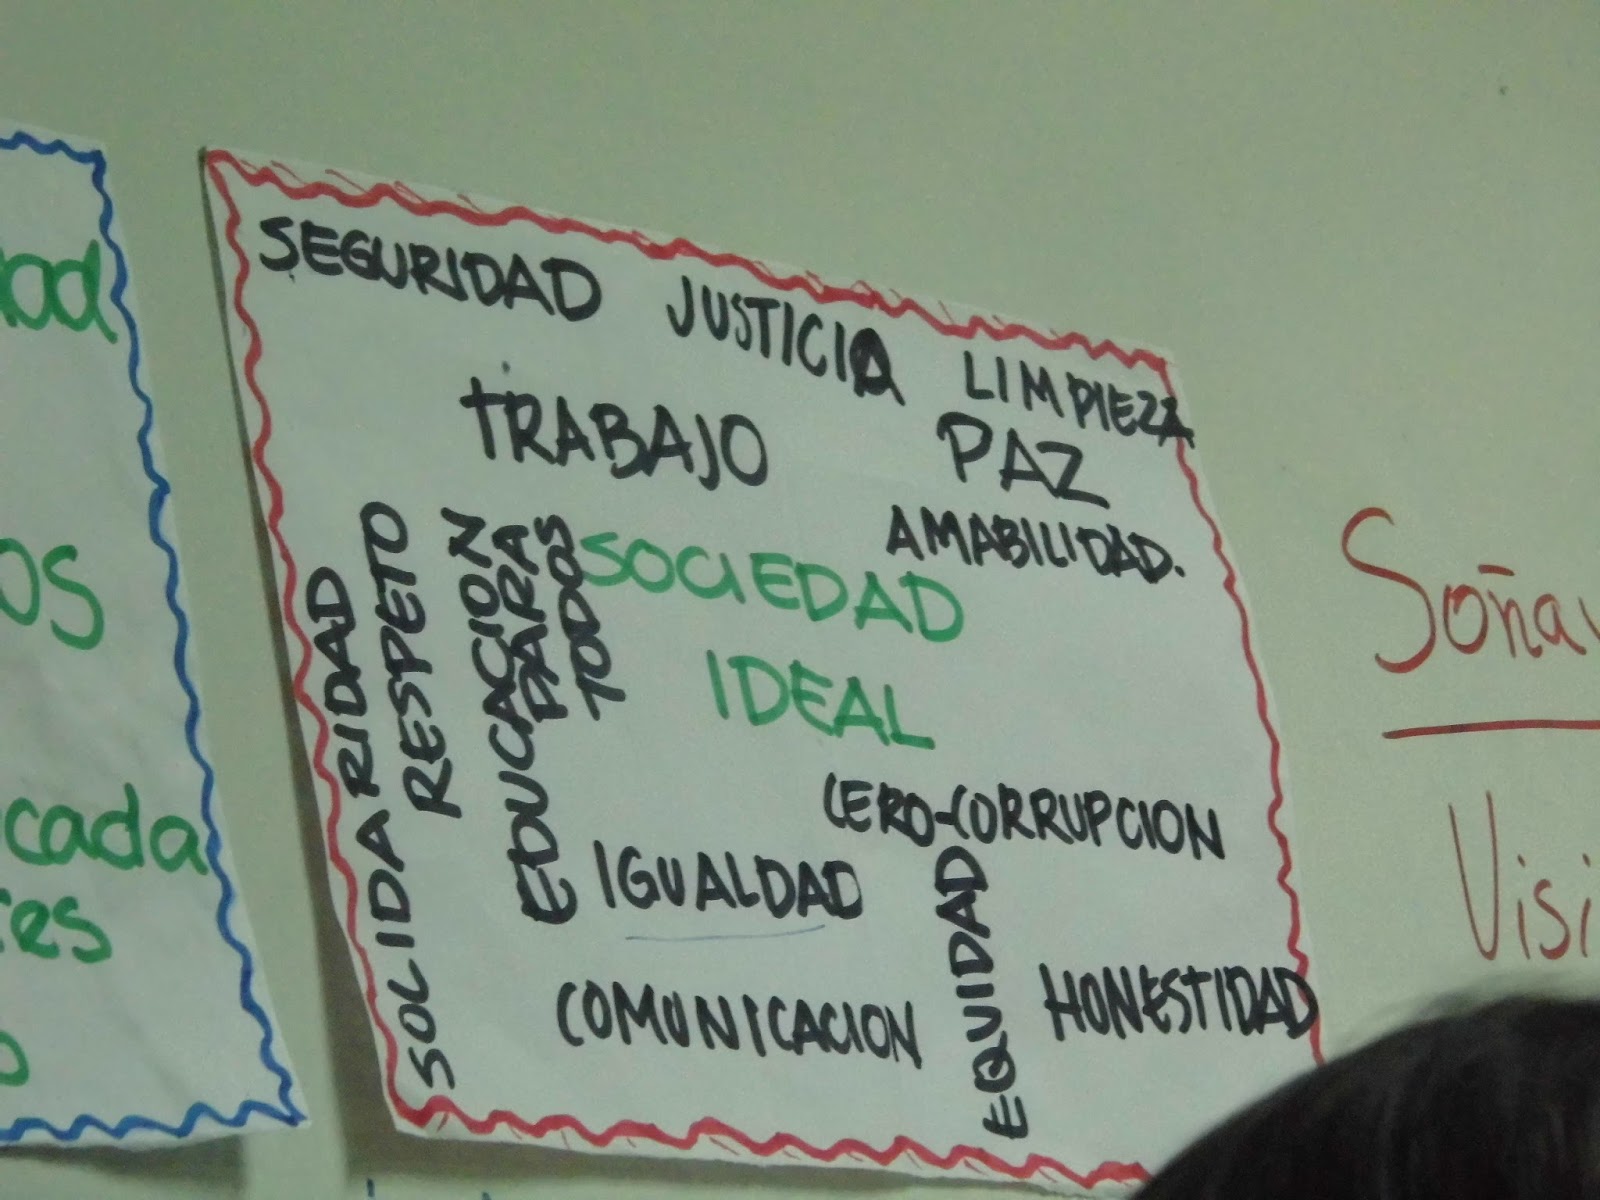 SEGURIDAD JUSTICIA LIMPIEZA
TRABAJO PAZ
AMABILIDAD.
SOLIDARIDAD
RESPETO
EDUCACION
PARA
TODOS
SOCIEDAD
IDEAL
CERO-CORRUPCION
IGUALDAD
EQUIDAD
COMUNICACION
HONESTIDAD